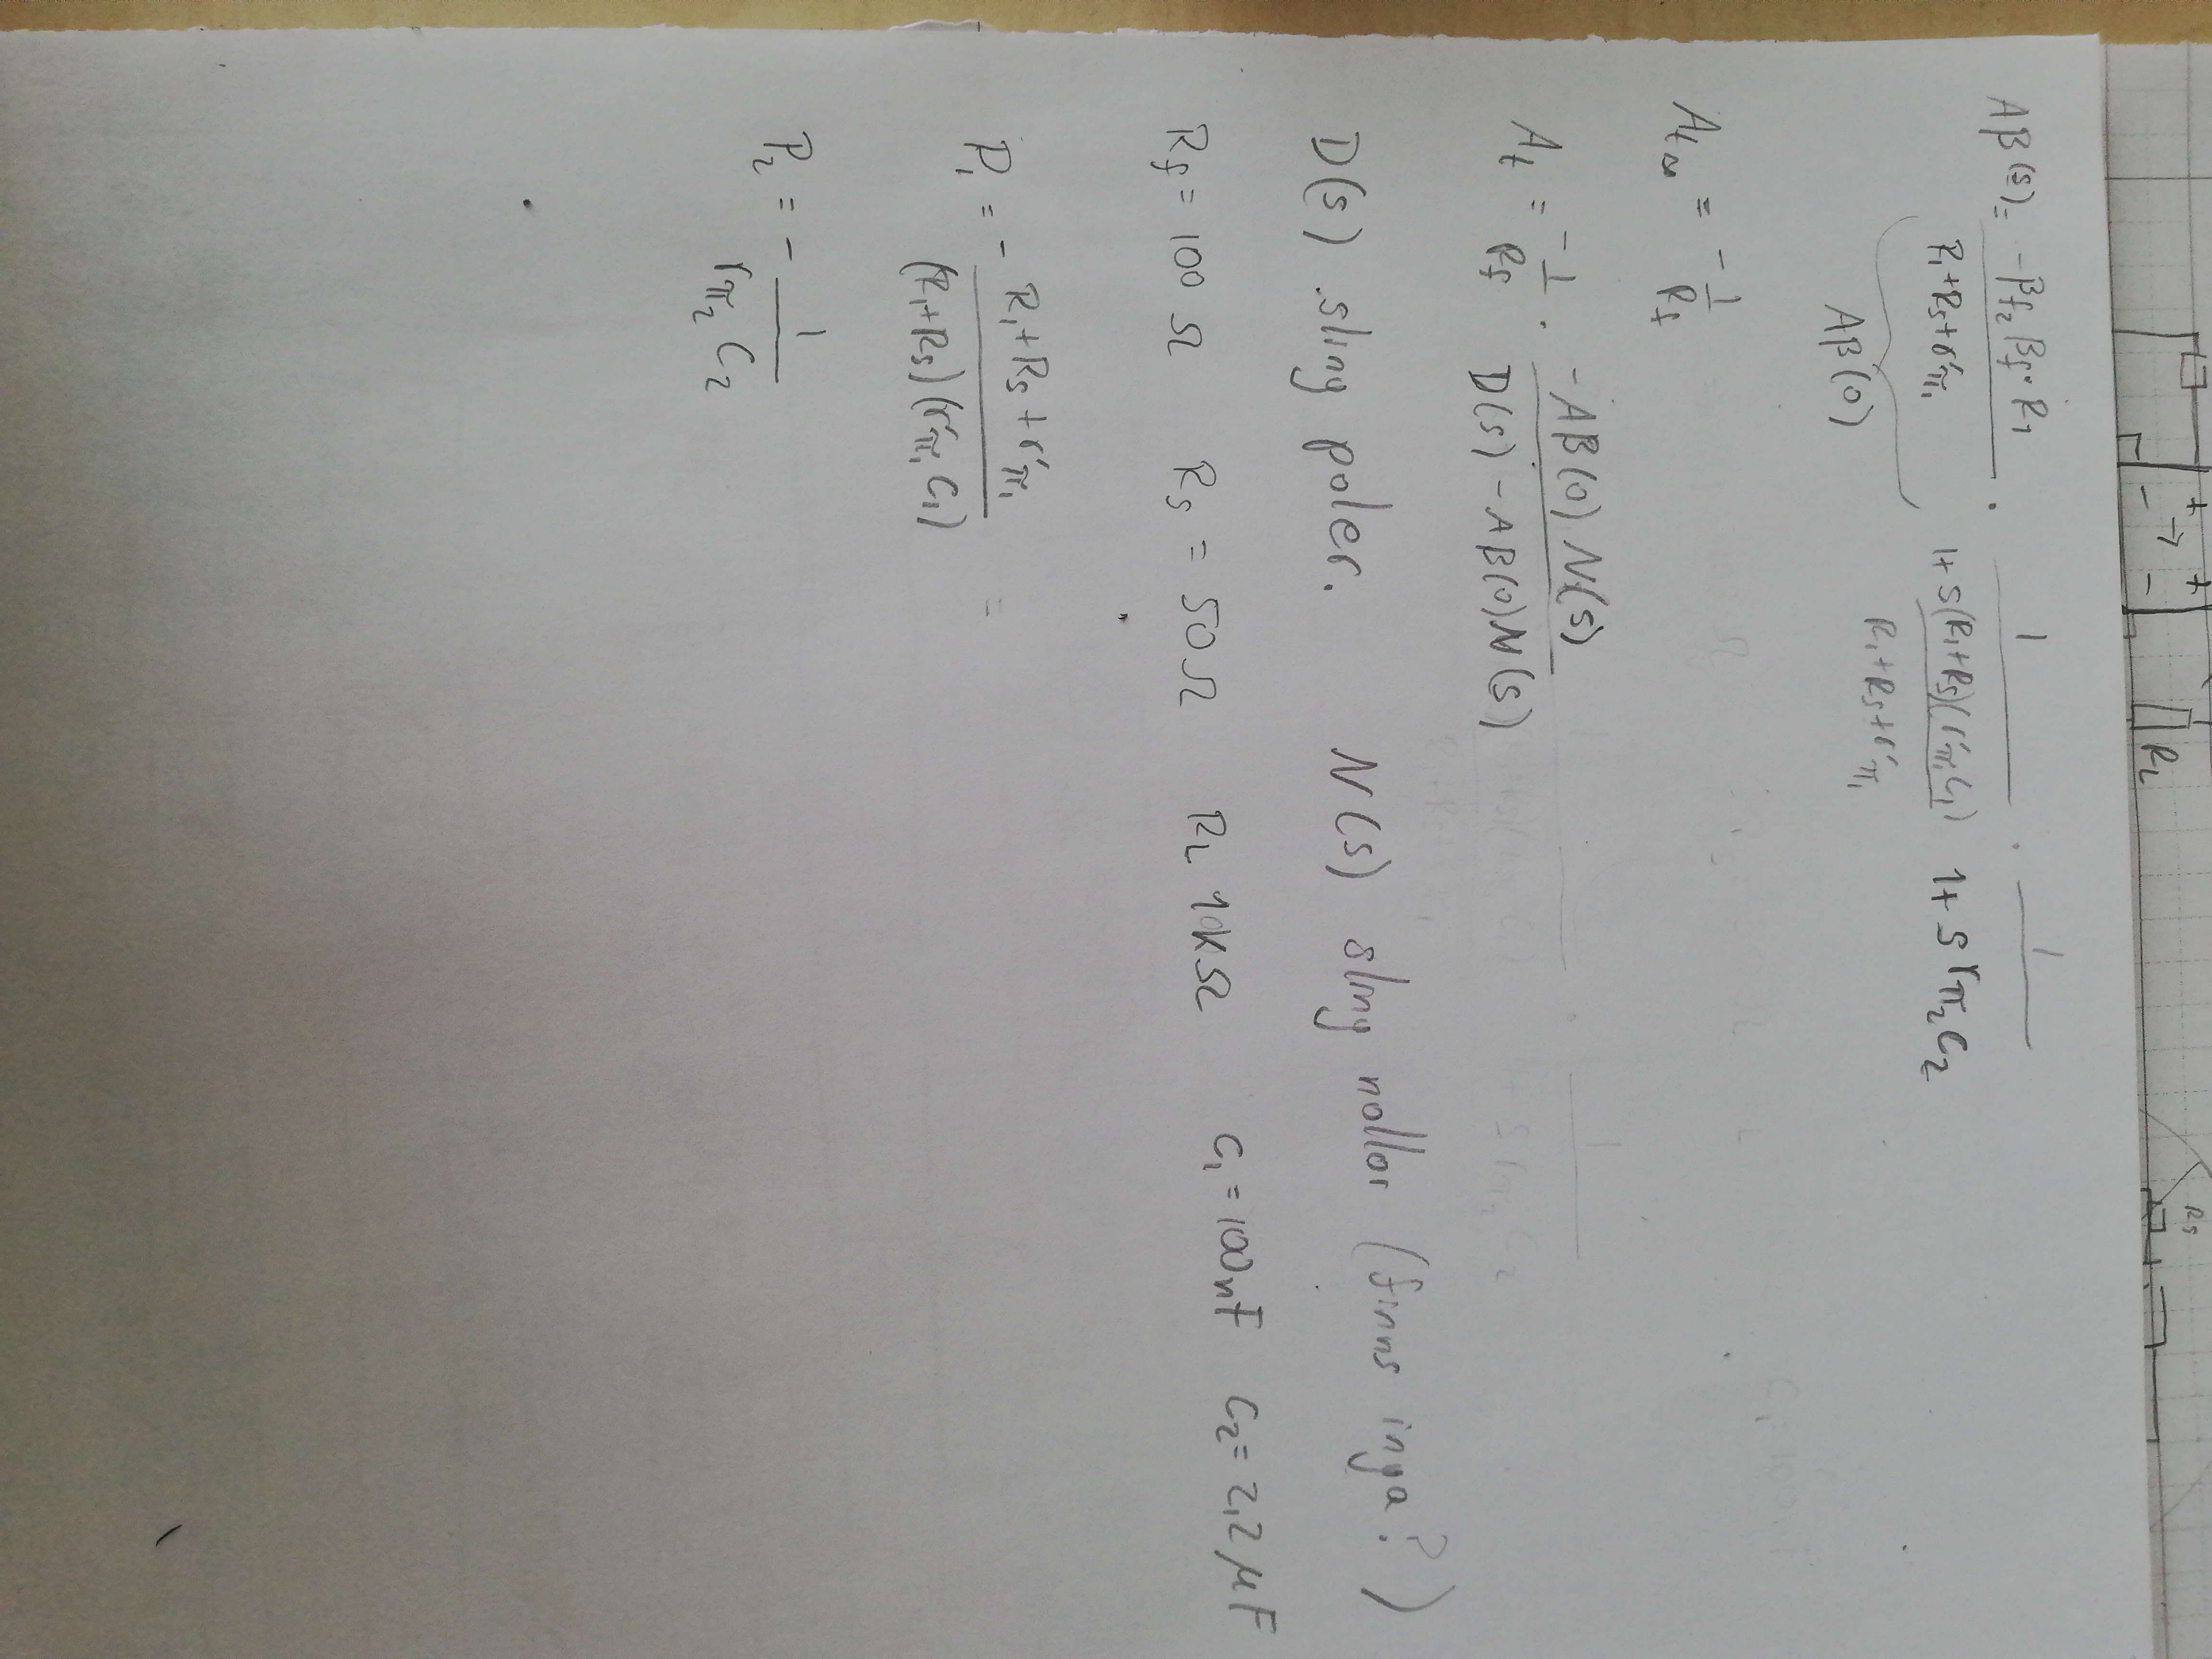 + + → - - R_L R_s
Aβ(s) = \frac{-β_{f_2} β_f · R_1}{R_1+R_s+r'_{π_1}} · \frac{1}{1+\frac{s(R_1+R_s)(r'_{π_1}C_1)}{R_1+R_s+r'_{π_1}}} · \frac{1}{1+s r_{π_2} C_2}
Aβ(0)
A_{t∞} = -\frac{1}{R_f}
A_t = \frac{-1}{R_f} · \frac{-Aβ(0) N(s)}{D(s) - Aβ(0)N(s)}
D(s) sling poler. N(s) sling nollor (finns inga?)
R_f = 100 Ω R_s = 50 Ω R_L 10kΩ C_1 = 100nF C_2 = 2,2 μF
P_1 = -\frac{R_1+R_s+r'_{π_1}}{(R_1+R_s)(r'_{π_1} C_1)} =
P_2 = -\frac{1}{r_{π_2} C_2}